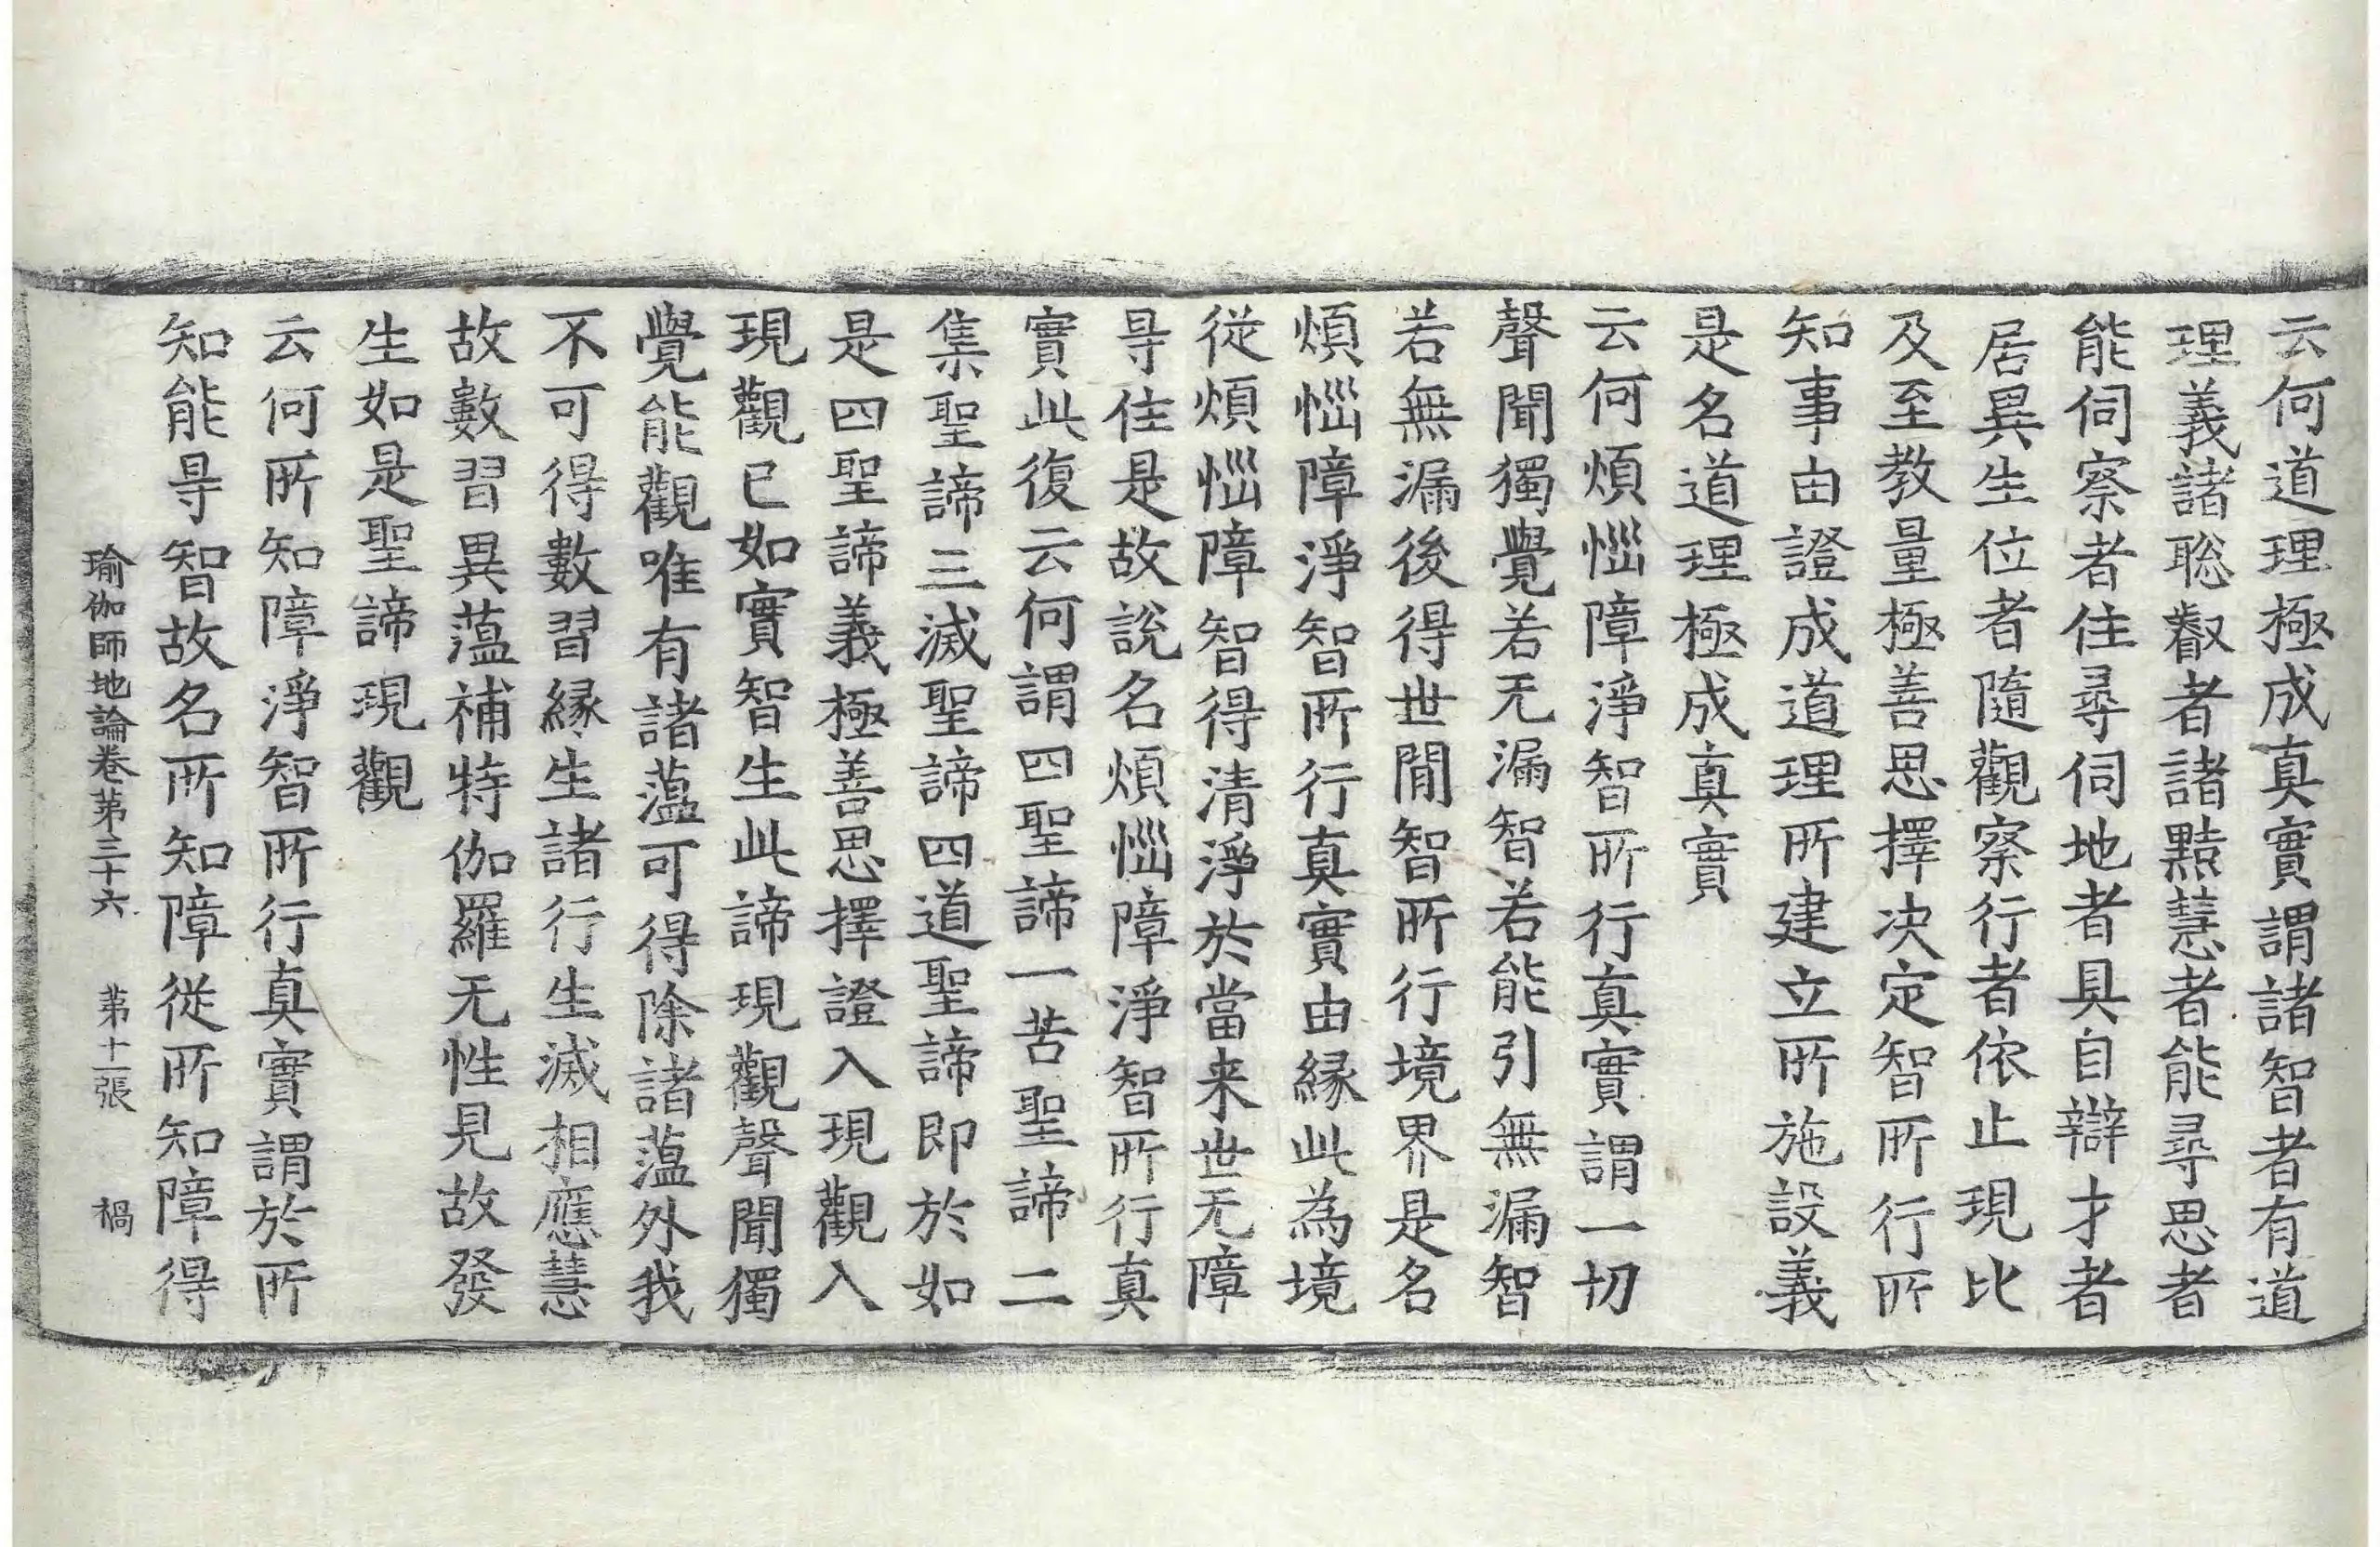 云何道理極成真實謂諸智者有道
理義諸聡叡者諸黠慧者能尋思者
能伺察者住尋伺地者具自辯才者
居異生位者隨觀察行者依止現比
及至教量極善思擇决定智所行所
知事由證成道理所建立所施設義
是名道理極成真實
云何煩惱障淨智所行真實謂一切
聲聞獨覺若无漏智若能引無漏智
若無漏後得世間智所行境界是名
煩惱障淨智所行真實由緣此為境
從煩惱障智得清淨於當来世无障
㝵住是故說名煩惱障淨智所行真
實此復云何謂四聖諦一苦聖諦二
集聖諦三滅聖諦四道聖諦即於如
是四聖諦義極善思擇證入現觀入
現觀已如實智生此諦現觀聲聞獨
覺能觀唯有諸蘊可得除諸蘊外我
不可得數習緣生諸行生滅相應慧
故數習異蘊補特伽羅无性見故發
生如是聖諦現觀
云何所知障淨智所行真實謂於所
知能㝵智故名所知障從所知障得
瑜伽師地論卷第三十六 第十一張 楇